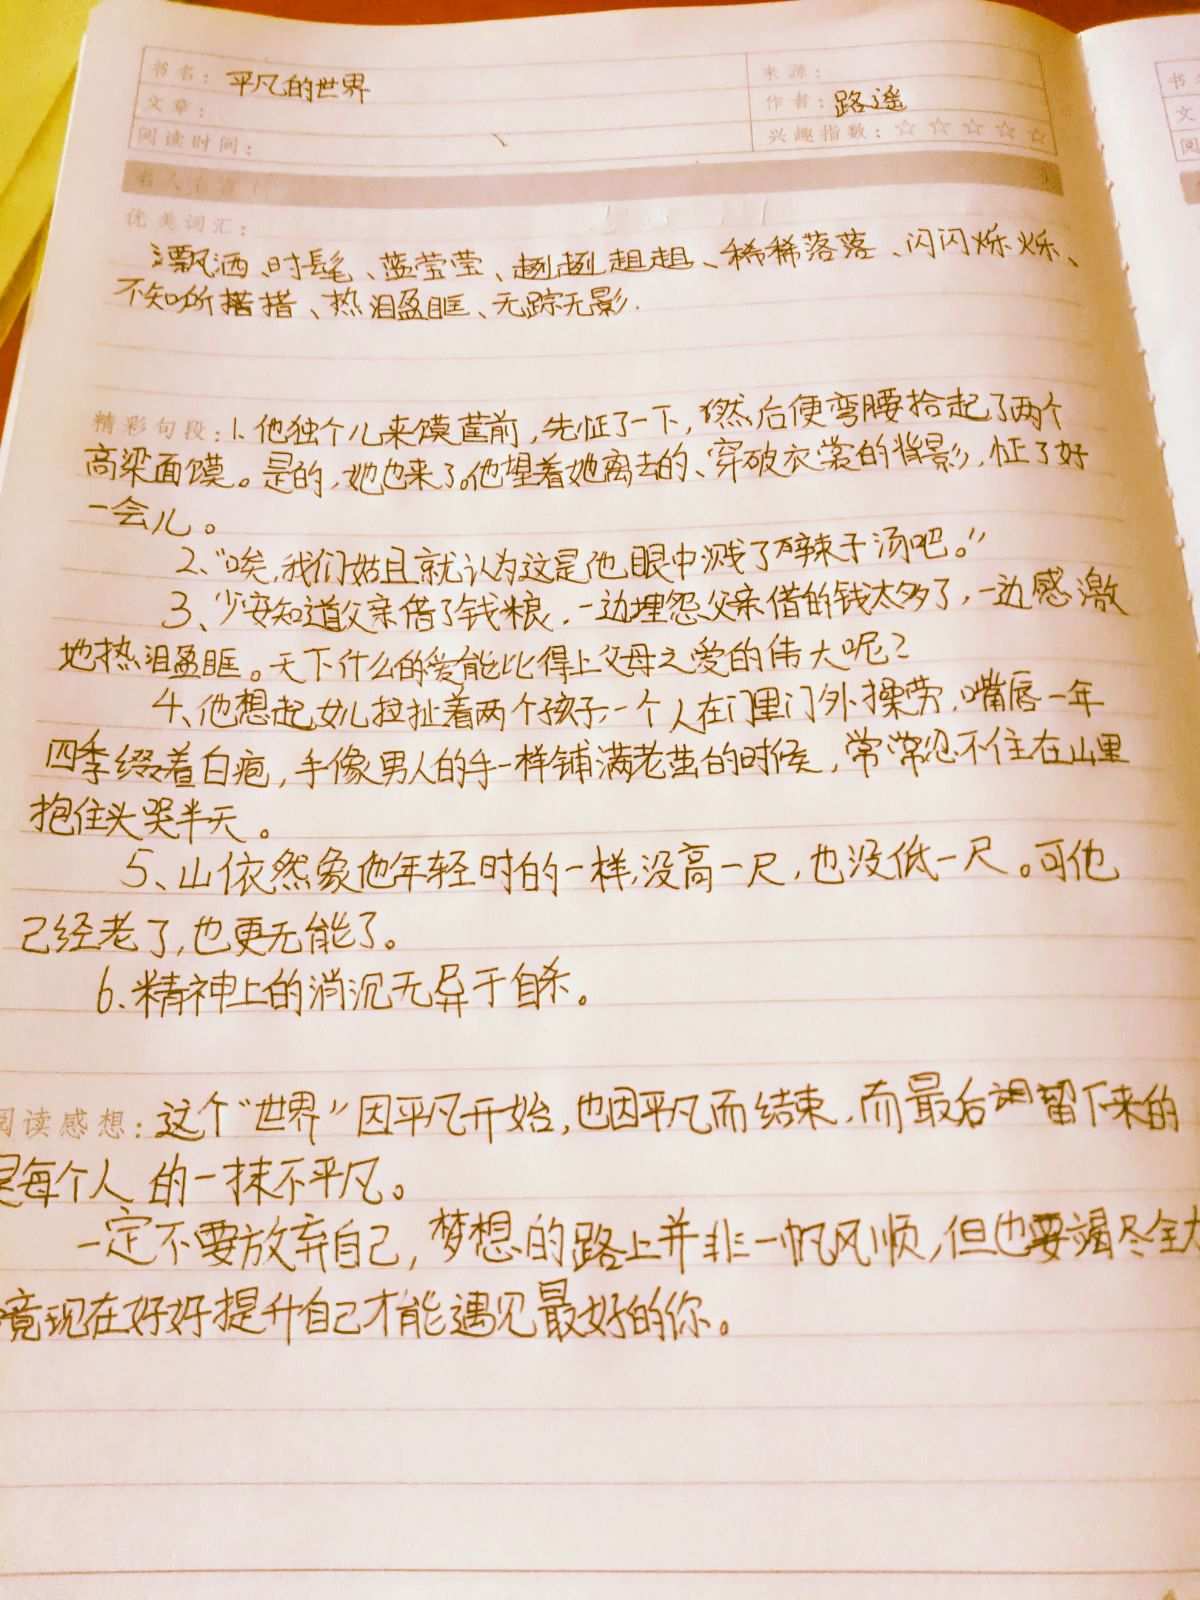 书名：平凡的世界
来源：
文章：
作者：路遥
阅读时间：
兴趣指数：☆ ☆ ☆ ☆ ☆
名人名言
优美词汇：
飘洒、时髦、蓝莹莹、趔趔趄趄、稀稀落落、闪闪烁烁、
不知所措、热泪盈眶、无踪无影.
精彩句段：1.他独个儿来馍筐前，先怔了一下，然后便弯腰拾起了两个
高梁面馍。是的，她也来了。他望着她离去的、穿破衣裳的背影，怔了好
一会儿。
2、“唉，我们姑且就认为这是他眼中溅了辣子汤吧。”
3、少安知道父亲借了钱粮，一边埋怨父亲借的钱太多了，一边感激
地热泪盈眶。天下什么的爱能比得上父母之爱的伟大呢？
4、他想起女儿拉扯着两个孩子，一个人在门里门外操劳，嘴唇一年
四季缀着白疱，手像男人的手一样铺满老茧的时候，常常忍不住在山里
抱住头哭半天。
5、山依然象他年轻时的一样，没高一尺，也没低一尺。可他
已经老了，也更无能了。
6.精神上的消沉无异于自杀。
阅读感想：这个“世界”因平凡开始，也因平凡而结束，而最后留下来的
是每个人的一抹不平凡。
一定不要放弃自己，梦想的路上并非一帆风顺，但也要竭尽全力
竟现在好好提升自己才能遇见最好的你。